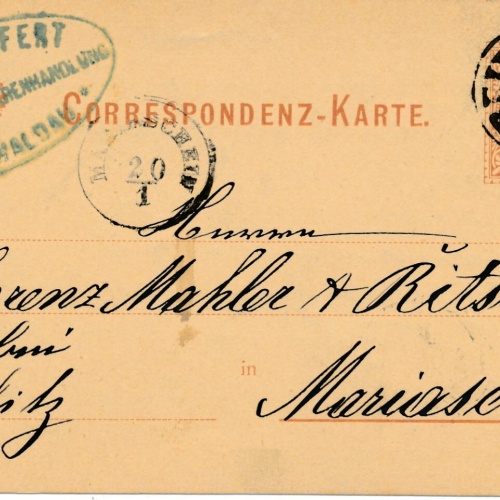 FERT
RENHANDLUNG
WALDAU
CORRESPONDENZ-KARTE.
MARIASCHEIN
20
1
Herren
orenz Mahler & Rits
bei
itz
in
Mariasc